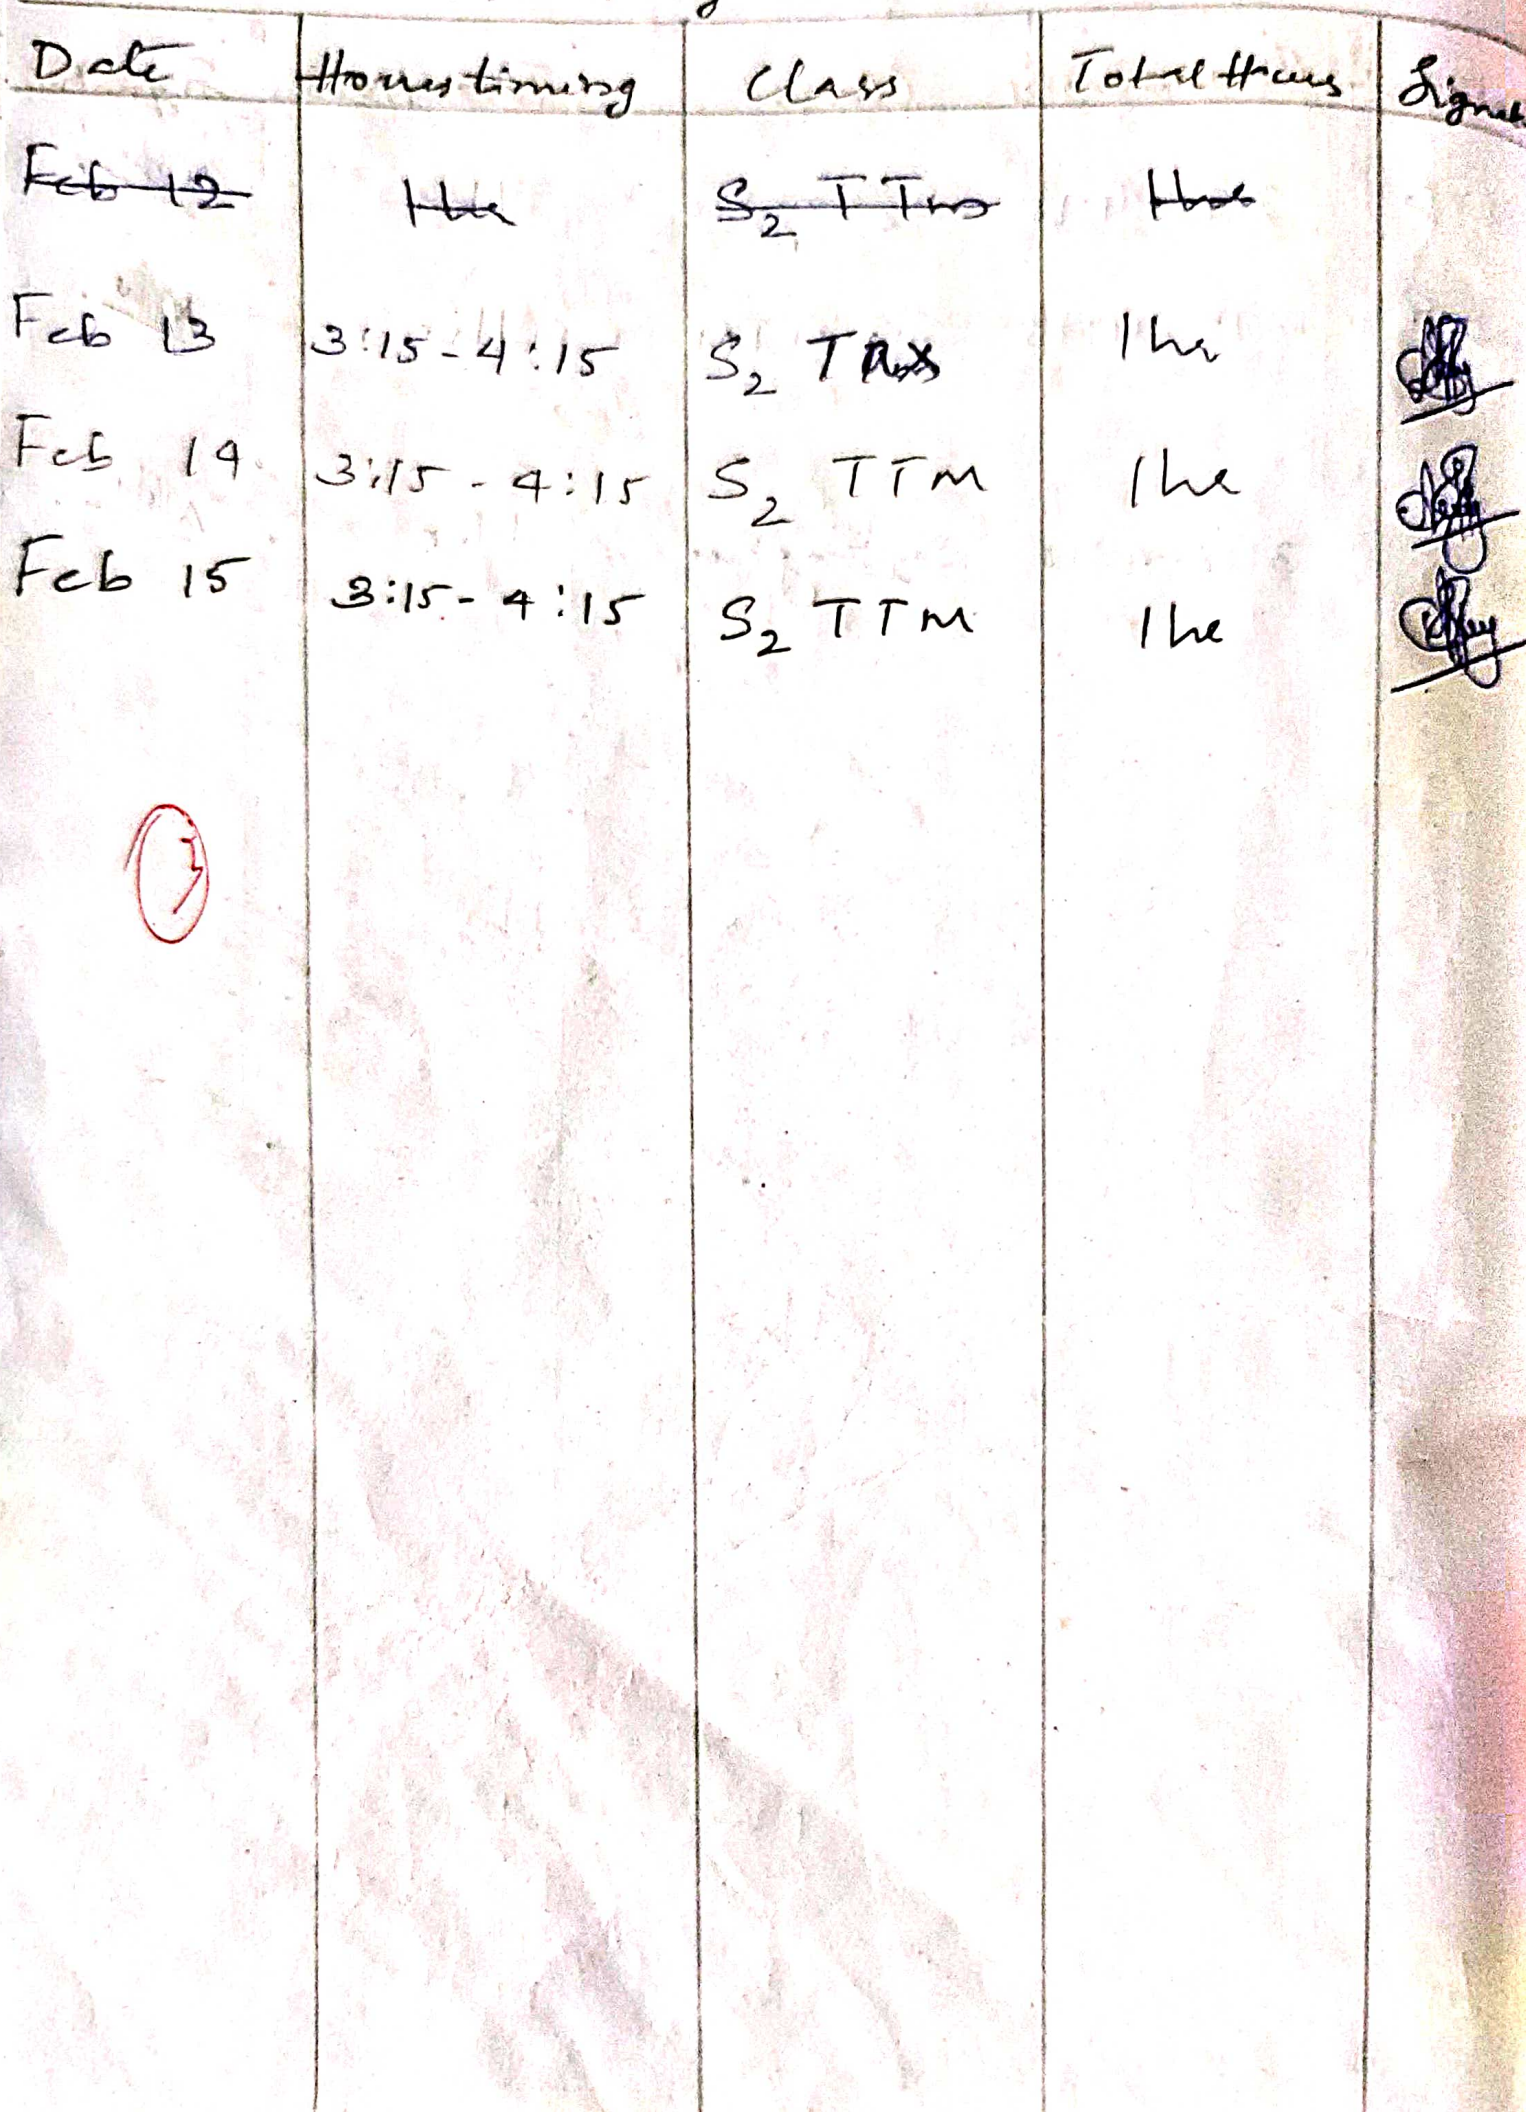 Date Hours timing Class Total Hours Signat
Feb 12 1hr S2 TTm 1hr
Feb 13 3:15-4:15 S2 Tax 1hr
Feb 14 3:15-4:15 S2 TTM 1hr
Feb 15 3:15-4:15 S2 TTM 1hr
3